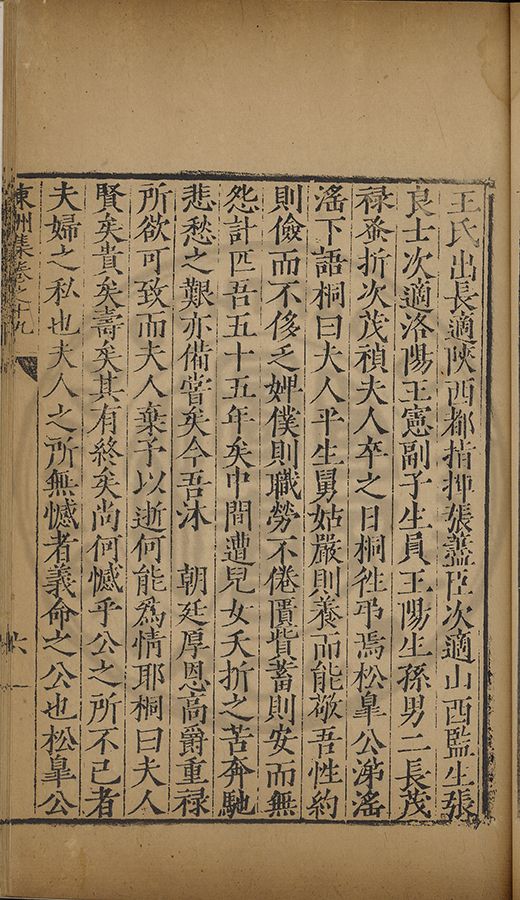 王氏出長適陝西都指揮張藎臣次適山西監生張
良士次適洛陽王憲副子生員王陽生孫男二長茂
祿蚤折次茂禎夫人卒之日桐徃弔焉松臯公涕滛
滛下語桐曰夫人平生舅姑嚴則養而能敬吾性約
則儉而不侈乏婢僕則職勞不倦匱貲蓄則安而無
怨計匹吾五十五年矣中間遭兒女夭折之苦奔馳
悲愁之艱亦備甞矣今吾沐 朝廷厚恩高爵重祿
所欲可致而夫人棄予以逝何能爲情耶桐曰夫人
賢矣貴矣壽矣其有終矣尚何憾乎公之所不已者
夫婦之私也夫人之所無憾者義命之公也松臯公
東洲集卷之十九
六